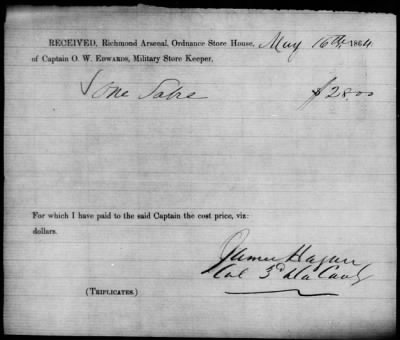 RECEIVED, Richmond Arsenal, Ordnance Store House, May 16th, 1864
of Captain O. W. EDWARDS, Military Store Keeper,
One Sabre $28.00
For which I have paid to the said Captain the cost price, viz:
dollars.
James Hagan
Col 3d Va Cavy
(TRIPLICATES.)